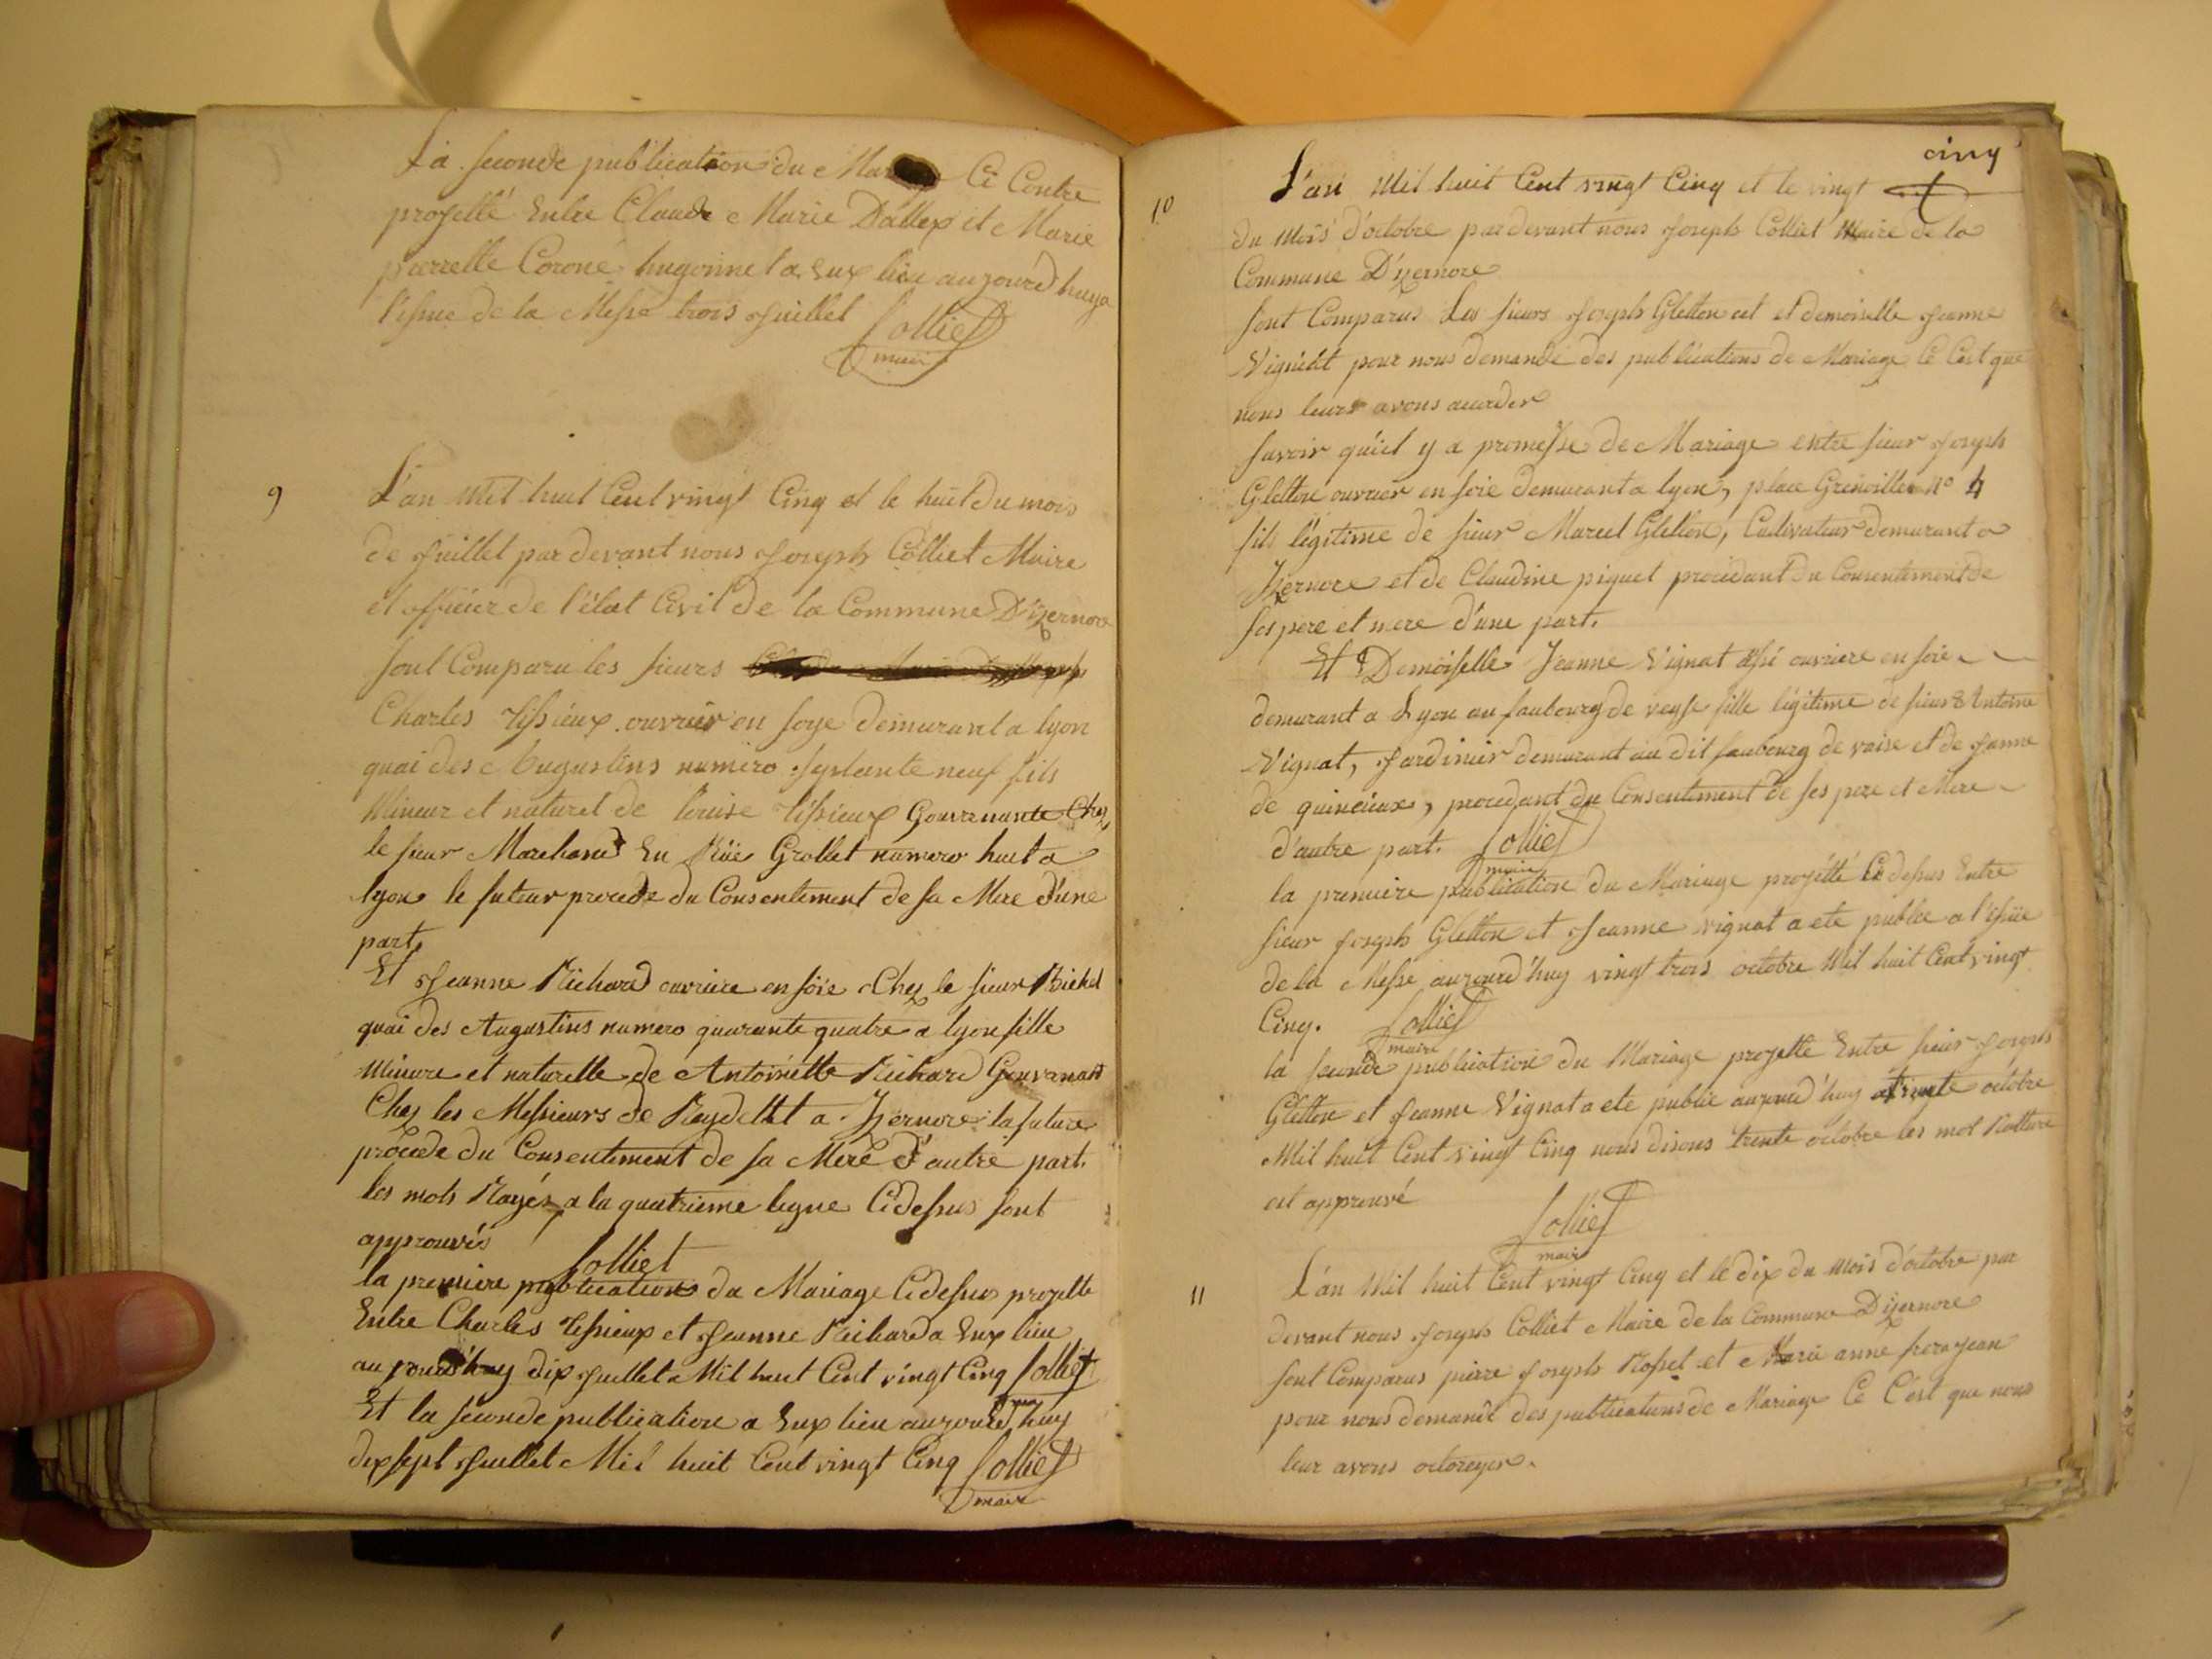 La seconde publication du Ci Contre
projetté Entre Claude Marie Dallex et Marie
pierrette Coroné hugonnet a Eux lieu aujourd huy a
l'issue de la Messe trois Juillet Colliet
maire
9
L'an Mil huit Cent vingt Cinq et le huit du mois
de Juillet par devant nous Joseph Colliet Maire
et officier de l'état Civil de la Commune D'izernore
sont Comparu les sieurs
Charles Tissieux ouvrier en soye demeurant a lyon
quai des Augustins numero septante neuf fils
Mineur et naturel de Louise Tissieux Gouvernante Chez
le sieur Marchand En Rüe Grollet numero huit a
lyon le futeur procede du Consentement de sa Mere d'une
part,
Et Jeanne Richard ouvriere en soie Chez le sieur Bichel
quai des Augustins numero quarante quatre a lyon fille
Mineure et naturelle de Antoinette Richard Gouvernant
Chez les Messieurs de Reydellet a Izernore la future
procede du Consentement de sa Mere d'autre part.
les mots Rayés a la quatrieme ligne Cidessus sont
approuvés Colliet
la premiere publication du Mariage Cidessus projetté
Entre Charles Tissieux et Jeanne Richard a Eux lieu
aujourd'huy dix Juillet Mil huit Cent vingt Cinq Colliet
Et la seconde publication a Eux lieu aujourd huy
dixsept Juillet Mil huit Cent vingt Cinq Colliet
maire
cinq
10
L'an Mil huit Cent vingt Cinq et le vingt
du Mois d'octobre par devant nous Joseph Colliet Maire de la
Commune D'izernore
sont Comparus Les sieurs Joseph Gletton et demoiselle Jeanne
Vignat pour nous demandé des publications de Mariage Ce C'est que
nous leurs avons accorder
savoir qu'il y a promesse de Mariage entre sieur Joseph
Gletton ouvrier en soie demeurant a lyon, place Grenoille No 4
fils légitime de sieur Marcel Gletton, Cultivateur demurant a
Izernore et de Claudine piquet procedant du Consentement de
ses pere et mere d'une part.
Et Demoiselle Jeanne Vignat ouvriere en soie
demurant a Lyon au faubourg de veyse fille légitime de sieur Antoine
Vignat, Jardinier demurant au dit faubourg de vaise et de Janne
de quincieux, procedant du Consentement de ses pere et Mere
d'autre part. Colliet
maire
la premiere publication du Mariage projétté Ci dessus Entre
sieur Joseph Gletton et Jeanne vignat a ete publee a l'issüe
de la Messe aujourd'huy vingt trois octobre Mil huit Cent vingt
Cinq. Colliet
maire
la seconde publication du Mariage projetté Entre sieur Joseph
Gletton et Jeanne Vignat a ete publie aujourd'huy trente octobre
Mil huit Cent vingt Cinq nous disons trente octobre les mot Rature
est approuvé
Colliet
maire
11
L'an Mil huit Cent vingt Cinq et le dix du mois d'octobre par
devant nous Joseph Colliet Maire de la Commune D'izernore
sont Comparus pierre Joseph Rosset et Marie anne
pour nous demandé des publications de Mariage Ce C'est que nous
leur avons octroyer.